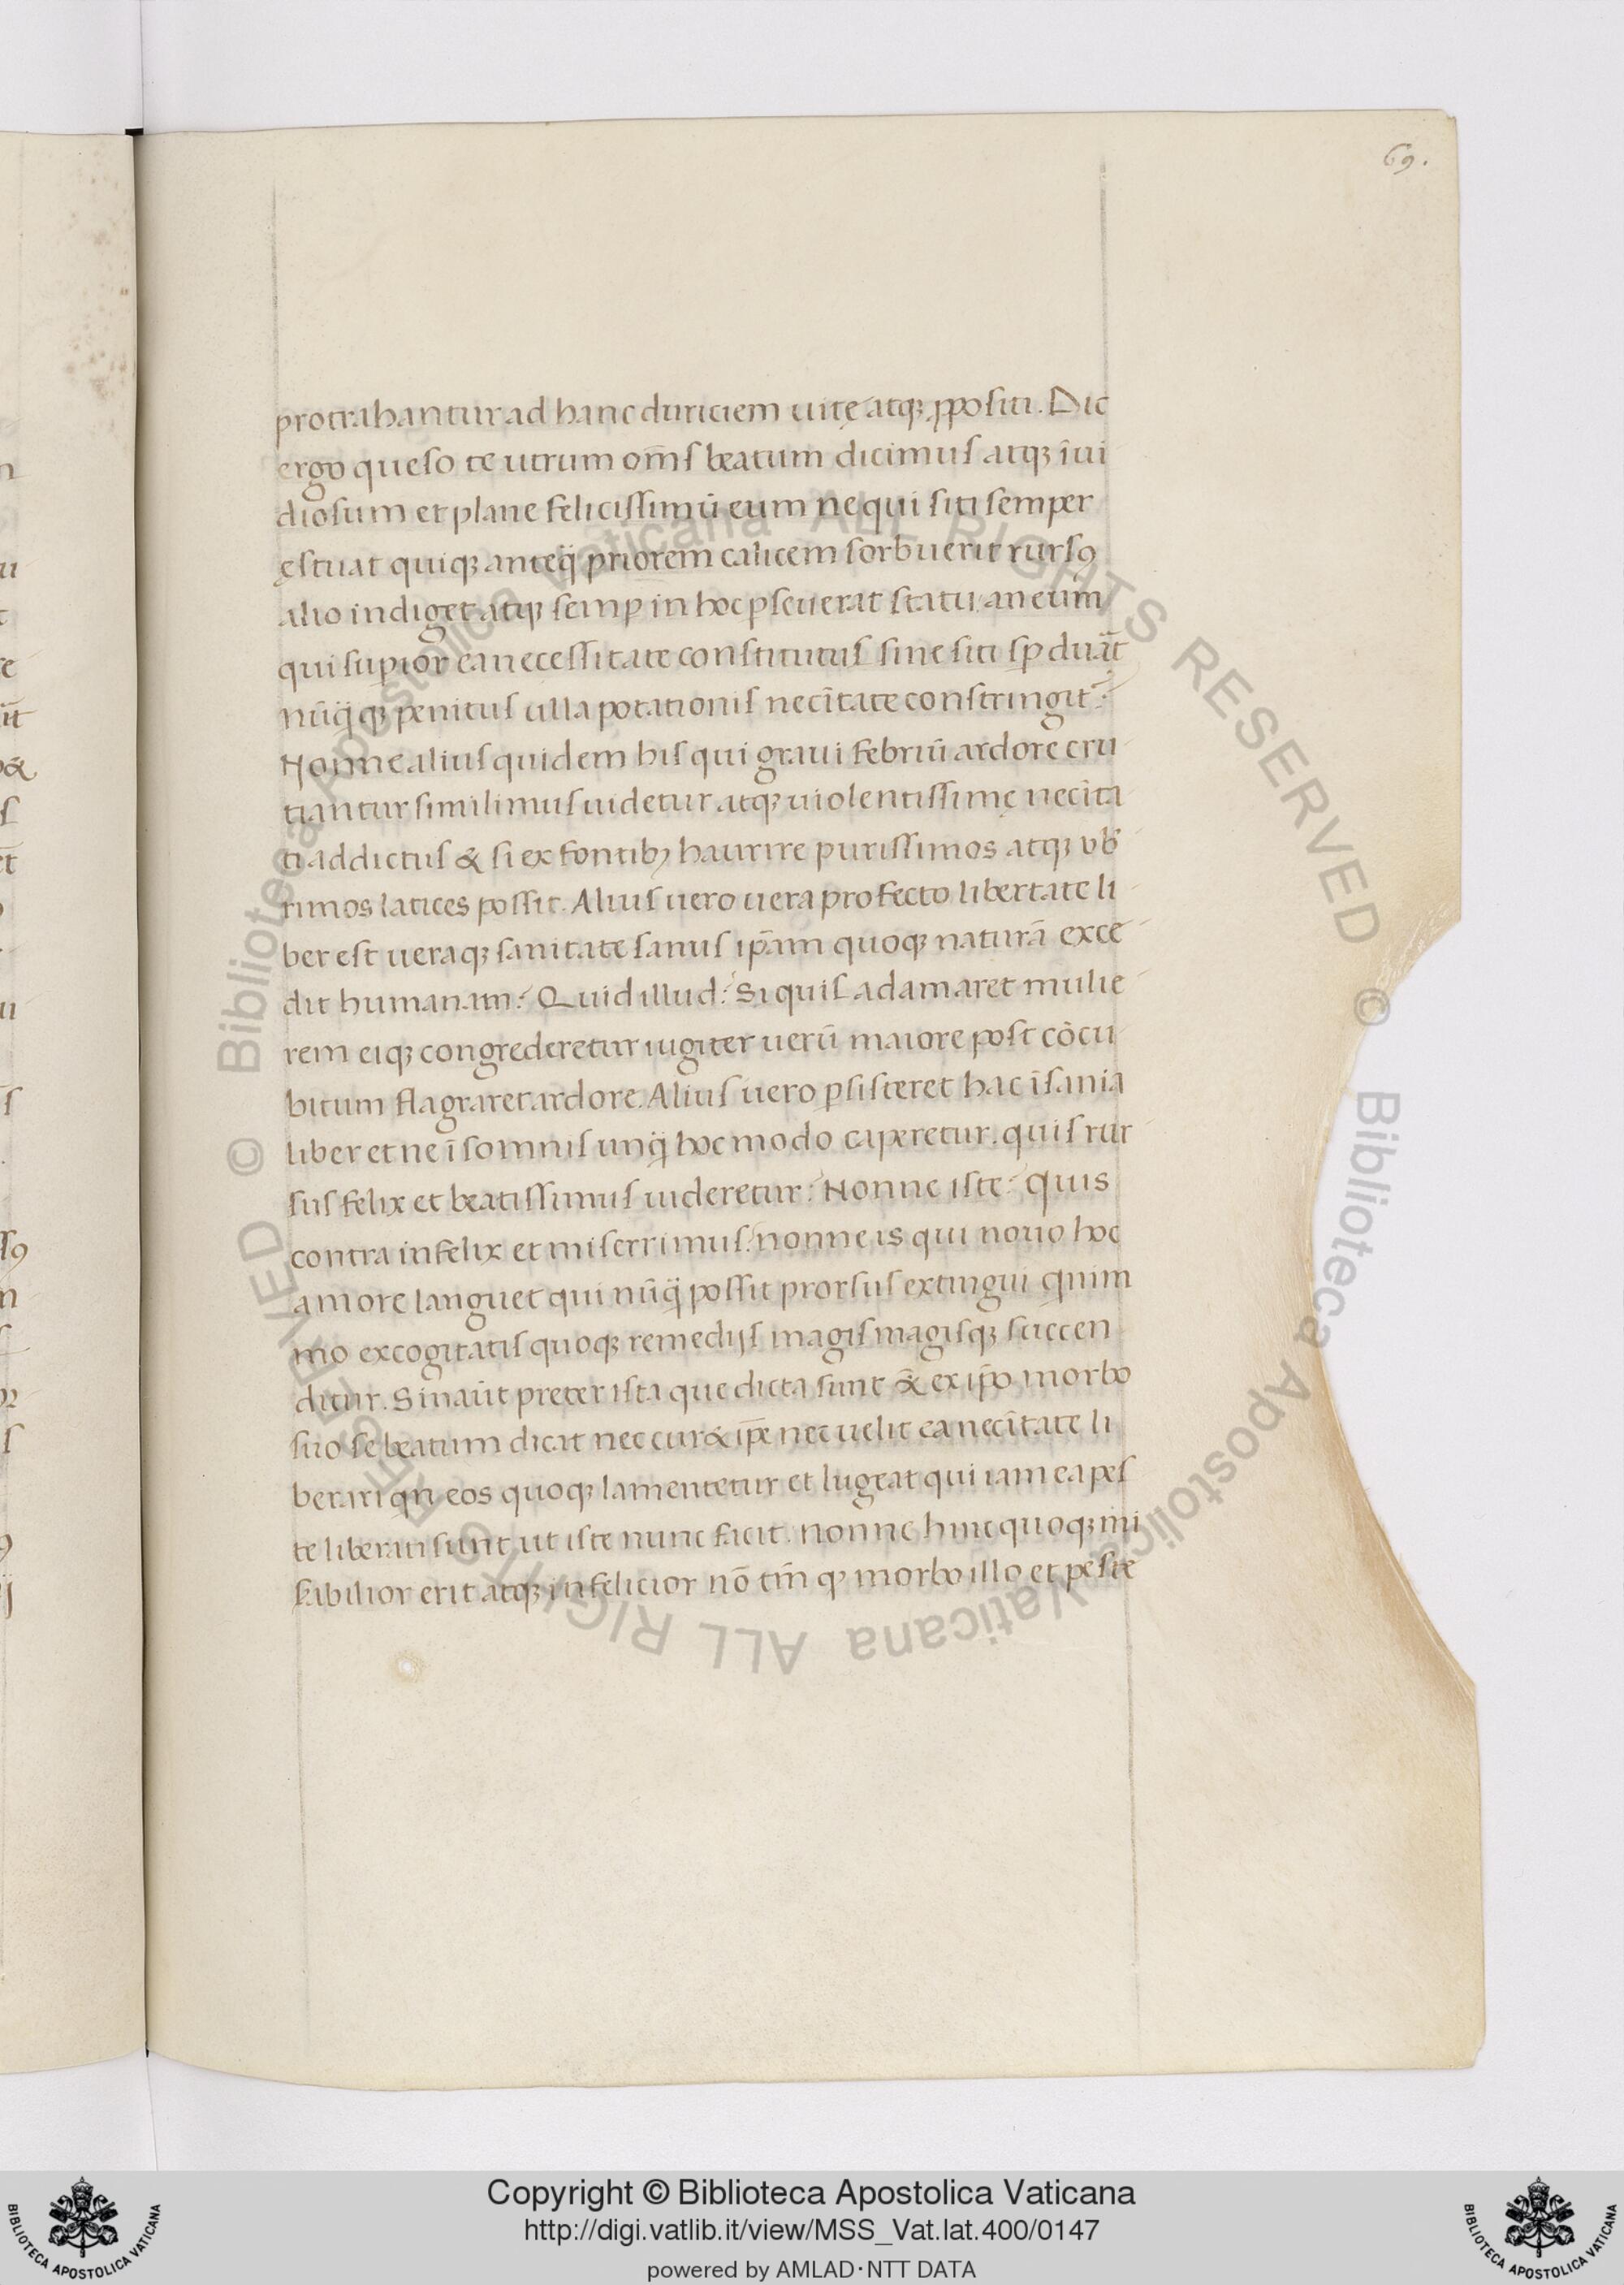 69.
protrahantur ad hanc duriciem uitę atqꝫ ꝓpositi. Dic
ergo queso te utrum om̄s beatum dicimus atqꝫ īui
diosum et plane felicissimū eum ne qui siti semper
ęstuat quiqꝫ anteq̈ priorem calicem sorbuerit rursꝯ
alio indiget atqꝫ semꝑ in hoc ꝑseuerat statu, an eum
qui suꝑior ea necessitate constitutus sine siti sꝑ durāt
nūq̈qꝫ penitus ulla potationis necītate constringit̄?
Nonne alius quidem his qui graui febriū ardore cru
tiantur similimus uidetur atqꝫ uiolentissimę necīta
ti addictus & si ex fontibꝫ haurire purissimos atqꝫ vb̄
rimos latices possit. Alius uero uera profecto libertate li
ber est ueraqꝫ sanitate sanus ip̄am quoqꝫ naturā exce
dit humanam? Quid illud? Si quis adamaret mulie
rem eiqꝫ congrederetur iugiter uerū maiore post cōcu
bitum flagraret ardore. Alius uero ꝑsisteret hac īsania
liber et ne ī somnis unq̈ hoc modo caperetur. quis rur
sus felix et beatissimus uideretur? Nonne iste? quis
contra infelix et miserrimus? nonne is qui nouo hoc
amore languet qui nūq̈ possit prorsus extingui quim
mo excogitatis quoqꝫ remedijs magis magisqꝫ succen
ditur. Sin aūt preter ista que dicta sunt & ex ip̄o morbo
suo se beatum dicat nec cur & ip̄e nec uelit ea necītate li
berari qn̄ eos quoqꝫ lamentetur et lugeat qui iam ea pes
te liberati sunt ut iste nunc facit. nonne hinc quoqꝫ mi
sabilior erit atqꝫ infelicior nō tm̄ ꝙ morbo illo et peste
Copyright © Biblioteca Apostolica Vaticana
http://digi.vatlib.it/view/MSS_Vat.lat.400/0147
powered by AMLAD·NTT DATA
BIBLIOTECA APOSTOLICA VATICANA
BIBLIOTECA APOSTOLICA VATICANA
© Biblioteca Apostolica Vaticana ALL RIGHTS RESERVED
© Biblioteca Apostolica Vaticana ALL RIGHTS RESERVED